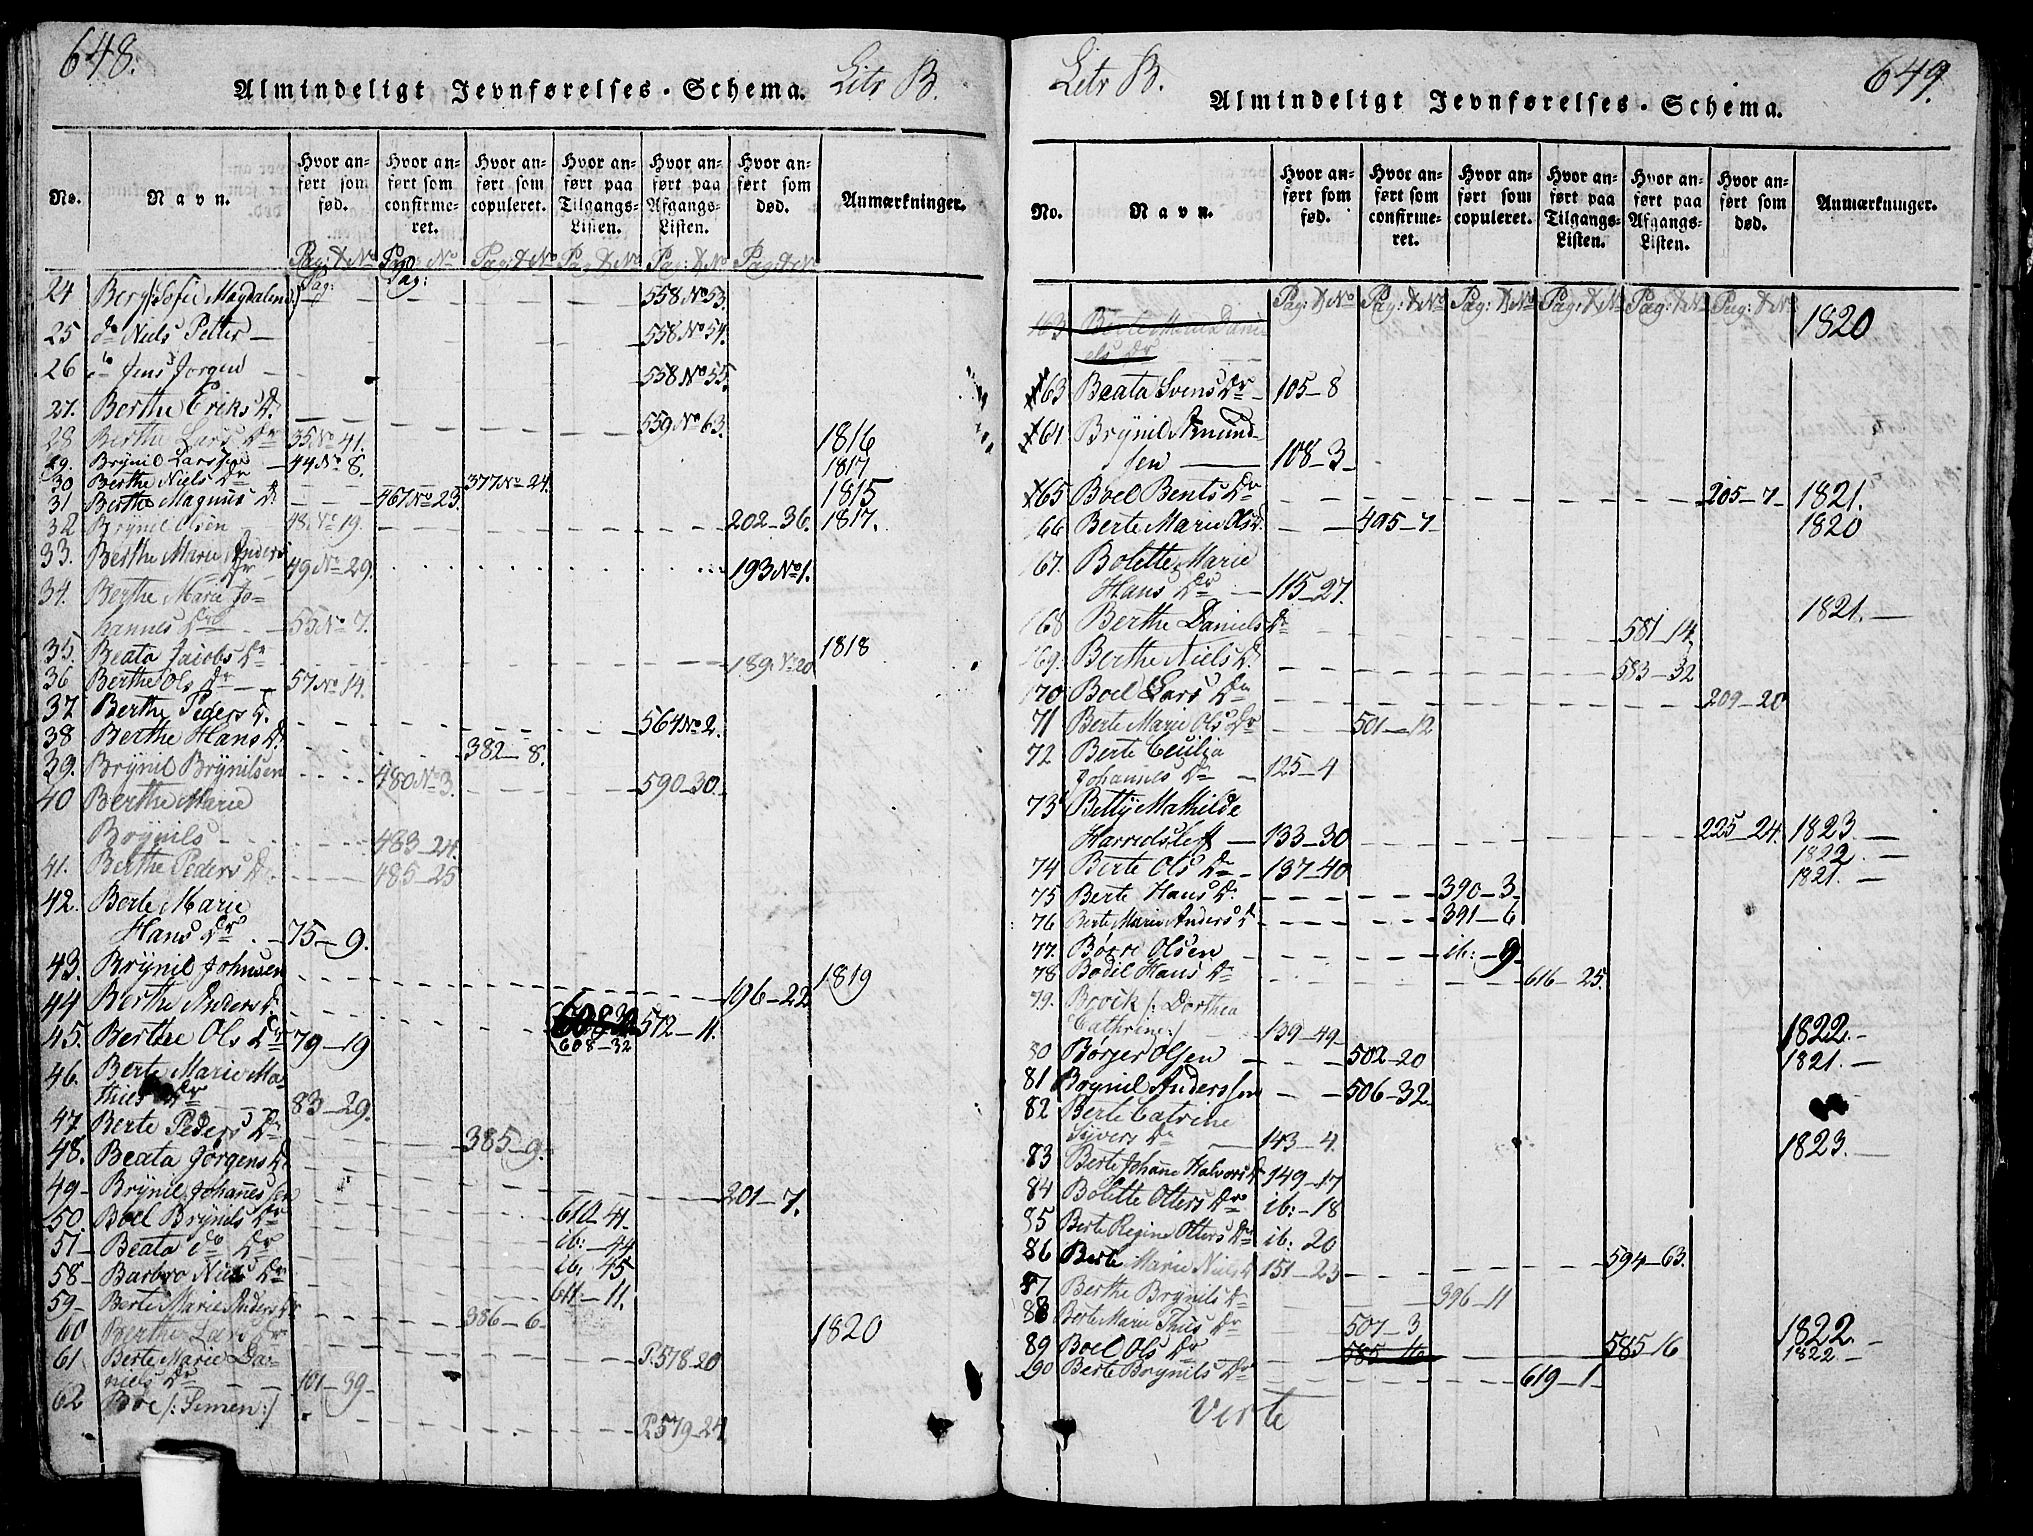 648.
Almindeligt Jevnførelses-Schema. Litr B.
No.
Navn.
Hvor anført som født.
Hvor anført som confirmeret.
Hvor anført som copuleret.
Hvor anført paa Tilgangs-Listen.
Hvor anført paa Afgangs-Listen.
Hvor anført som død.
Anmærkninger.
Pag: & No Pag: No Pag: & No Pag & No Pag: & No Pag & No
24 Berg /: Sofie Magdalena :/ 558 No 53.
25 do Niels Petter — 558 No 54.
26 do Jens Jorgen 558 No 55.
27. Berthe Eriks D. 559 No 63.
28 Berthe Lars Dr 35 No 41. 1816
29. Brynil Larssen — 44 No 8. 1817
30 Berthe Niels Dr 377 No 24.
31 Berthe Magnus D. 467 No 23. 1815
32 Brynil Olsen 48 No 19. 202-36. 1817.
33. Berthe Marie Anders
Dr 49 No 29. 193 No 1.
34. Berthe Marie Jo-
hannes Dr 55 No 7.
35. Beata Jacobs Dr 189 No 20 1818
36 Berthe Ols Dr 57 No 14.
37 Berthe Peders D. 564 No 2.
38 Berthe Hans D. 382-8.
39. Brynil Brynilsen 480 No 3. 590-30.
40 Berthe Marie
Brynils 483-24.
41. Berthe Peders D. 485-25
42. Berte Marie
Hans Dr 75-9.
43. Brynil Johnsen 196-22 1819
44 Berthe Anders D. 572-11.
45. Berthe Ols Dr 79-19 608-32
46. Berte Marie Ma-
thies Dr 83-29.
47 Berte Peders Dr 385-9.
48. Beata Jorgens D.
49- Brynil Johannessen 201-7.
50. Boel Brynils Dr 610-41.
51- Beata do Dr ib: -44
58- Barbro Niels Dr ib: 45
59- Berte Marie Anders Dr 611-11.
60 Berthe Lars Dr 386-6 1820
61 Berte Marie Da-
niels Dr 101-39 P. 578-20
62 Boe /: Simen :/ P. 579-24.
Litr B. 649.
Almindeligt Jevnførelses-Schema.
No.
Navn.
Hvor anført som fød.
Hvor anført som confirmeret.
Hvor anført som copuleret.
Hvor anført paa Tilgangs-Listen.
Hvor anført paa Afgangs-Listen.
Hvor anført som død.
Anmærkninger.
Pag: & No Pag: & No Pag: & No Pag: & No Pag: & No Pag: & No
163 Berte Marie Dani-
els Dr 1820
63 Beata Svens Dr 105-8
64 Brynil Amund-
sen — 108-3
65 Boel Bents Dr 205-7 1821.
66 Berte Marie Ols D. 495-7 1820
67. Bolette Marie
Hans Dr 115-27.
168 Berthe Daniels Dr 581-14 1821.
169. Berthe Niels D. 583-32
170 Boel Lars Dr 209-20
71 Berte Marie Ols Dr 501-12
72 Berte Cecilia
Johannes Dr 125-4
73 Betty Mathilde
Harridsleff — 133-30 225-24. 1823.
74 Berte Ols Dr 137-40 1822.
75 Berte Hans D. 390-3 1821.
76 Berte Marie Anders D. 391-6
77. Børre Olsen ib: -9
78 Bodil Hans Dr 616-25.
79. Brock /: Dorthea
Cathrine :/ 139-49 1822.
80 Børjer Olsen 502-20 1821.
81 Brynil Anderssen 506-32
82 Berte Catrine
Syvers Dr 143-4 1823.
83 Berte Johane Halvors Dr 149-17
84 Bolette Otters Dr ib: -18
85 Berte Regine Otters Dr ib: 20
86 Berte Marie Niels D. 151-23 594-63.
87 Berthe Brynils Dr 396-11
88 Berte Marie Thies Dr 507-3 1822.
89 Boel Ols Dr 585-16 585-16 1822.
90 Berte Brynils Dr 619-1
Verte